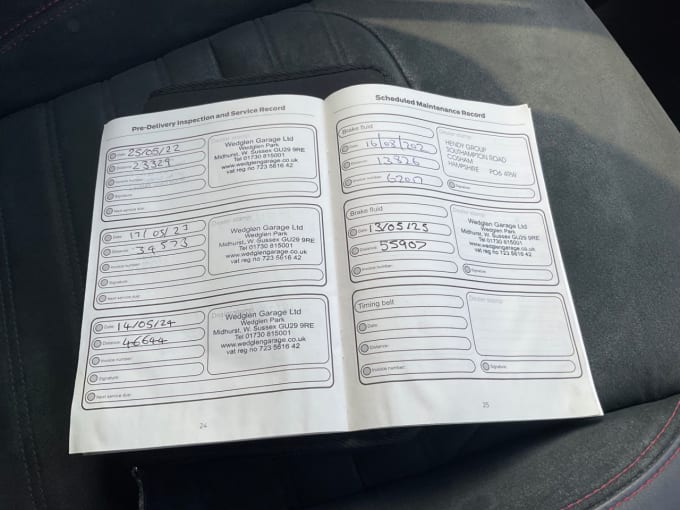 Pre-Delivery Inspection and Service Record
Date 25/05/22
Distance 23329
Invoice number
Signature
Next service due:
Dealer stamp
Wedglen Garage Ltd
Wedglen Park
Midhurst, W. Sussex GU29 9RE
Tel 01730 815001
www.wedglengarage.co.uk
vat reg no 723 5616 42
Date 17/05/23
Distance 34573
Invoice number:
Signature:
Next service due:
Dealer stamp
Wedglen Garage Ltd
Wedglen Park
Midhurst, W. Sussex GU29 9RE
Tel 01730 815001
www.wedglengarage.co.uk
vat reg no 723 5616 42
Date 14/05/24
Distance: 46644
Invoice number:
Signature:
Next service due:
Wedglen Garage Ltd
Wedglen Park
Midhurst, W. Sussex GU29 9RE
Tel 01730 815001
www.wedglengarage.co.uk
vat reg no 723 5616 42
24
Scheduled Maintenance Record
Brake fluid
Date: 16/03/202
Distance: 13826
Invoice number:
Dealer stamp
HENDY GROUP
SOUTHAMPTON ROAD
COSHAM
HAMPSHIRE PO6 4RW
Signature:
Brake fluid
Date: 13/05/25
Distance: 55907
Invoice number:
Dealer stamp
Wedglen Garage Ltd
Wedglen Park
Midhurst, W. Sussex GU29 9RE
Tel 01730 815001
www.wedglengarage.co.uk
vat reg no 723 5616 42
Signature:
Timing belt
Date:
Distance:
Invoice number:
Dealer stamp
Signature:
25